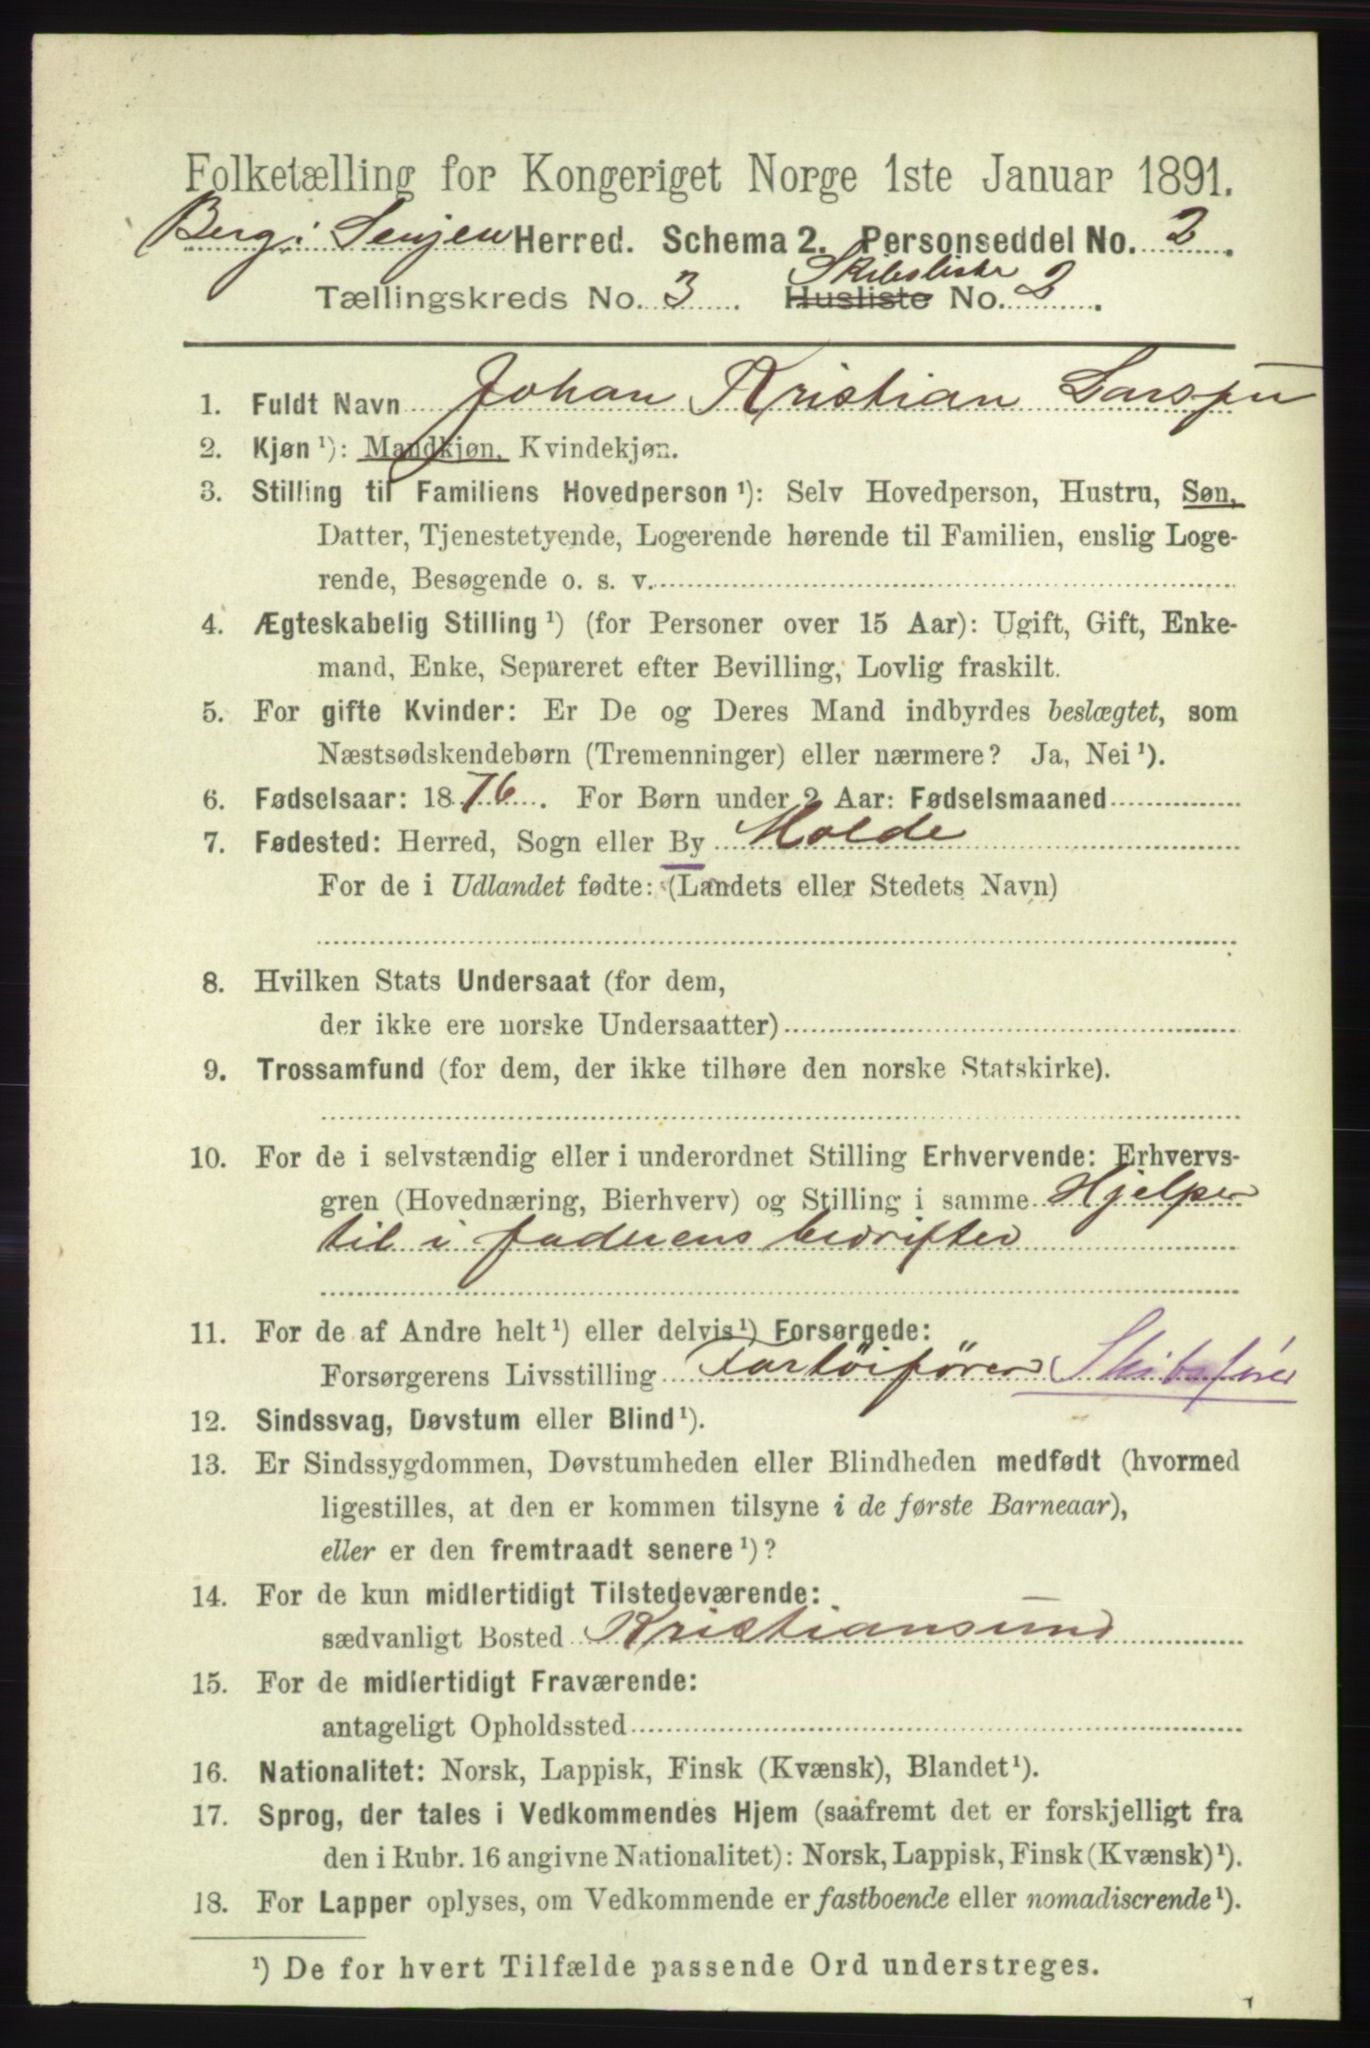 Folketælling for Kongeriget Norge 1ste Januar 1891.
Berg i Senjen Herred. Schema 2. Personseddel No. 2.
Skibsliste
Tællingskreds No. 3. Husliste No. 2.
1. Fuldt Navn Johan Kristian Larsen
2. Kjøn ¹): Mandkjøn, Kvindekjøn.
3. Stilling til Familiens Hovedperson ¹): Selv Hovedperson, Hustru, Søn,
Datter, Tjenestetyende, Logerende hørende til Familien, enslig Loge-
rende, Besøgende o. s. v.
4. Ægteskabelig Stilling ¹) (for Personer over 15 Aar): Ugift, Gift, Enke-
mand, Enke, Separeret efter Bevilling, Lovlig fraskilt.
5. For gifte Kvinder: Er De og Deres Mand indbyrdes beslægtet, som
Næstsødskendebørn (Tremenninger) eller nærmere? Ja, Nei ¹).
6. Fødselsaar: 1876. For Børn under 2 Aar: Fødselsmaaned
7. Fødested: Herred, Sogn eller By Molde
For de i Udlandet fødte: (Landets eller Stedets Navn)
8. Hvilken Stats Undersaat (for dem,
der ikke ere norske Undersaatter)
9. Trossamfund (for dem, der ikke tilhøre den norske Statskirke).
10. For de i selvstændig eller i underordnet Stilling Erhvervende: Erhvervs-
gren (Hovednæring, Bierhverv) og Stilling i samme Hjelper
til i faderens bedrifter
11. For de af Andre helt ¹) eller delvis ¹) Forsørgede:
Forsørgerens Livsstilling Fartøifører Skibsfører
12. Sindssvag, Døvstum eller Blind ¹).
13. Er Sindssygdommen, Døvstumheden eller Blindheden medfødt (hvormed
ligestilles, at den er kommen tilsyne i de første Barneaar),
eller er den fremtraadt senere ¹)?
14. For de kun midlertidigt Tilstedeværende:
sædvanligt Bosted Kristiansund
15. For de midlertidigt Fraværende:
antageligt Opholdssted
16. Nationalitet: Norsk, Lappisk, Finsk (Kvænsk), Blandet ¹).
17. Sprog, der tales i Vedkommendes Hjem (saafremt det er forskjelligt fra
den i Rubr. 16 angivne Nationalitet): Norsk, Lappisk, Finsk (Kvænsk) ¹).
18. For Lapper oplyses, om Vedkommende er fastboende eller nomadiserende ¹).
¹) De for hvert Tilfælde passende Ord understreges.